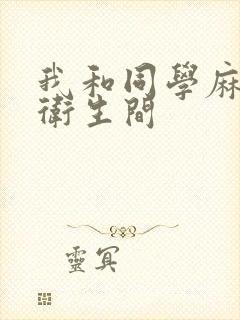 我和同學麻
衛生間
靈冥